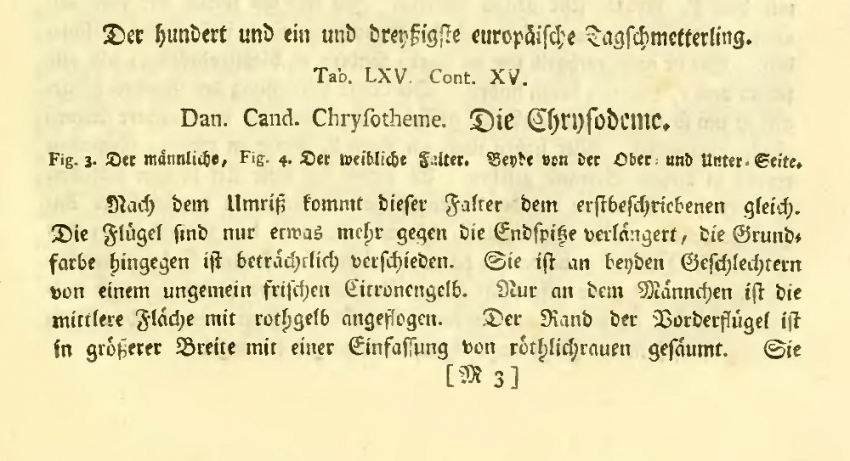 Der hundert und ein und dreyßigste europäische Tagschmetterling.
Tab. LXV. Cont. XV.
Dan. Cand. Chrysotheme. Die Chrysodeme.
Fig. 3. Der männliche, Fig. 4. Der weibliche Falter. Beyde von der Ober- und Unter-Seite.
Nach dem Umriß kommt dieser Falter dem erstbeschriebenen gleich.
Die Flügel sind nur etwas mehr gegen die Endspitze verlängert, die Grund-
farbe hingegen ist beträchtlich verschieden. Sie ist an beyden Geschlechtern
von einem ungemein frischen Citronengelb. Nur an dem Männchen ist die
mittlere Fläche mit rothgelb angeflogen. Der Rand der Vorderflügel ist
in größerer Breite mit einer Einfassung von röthlichrauen gesäumt. Sie
[M 3]